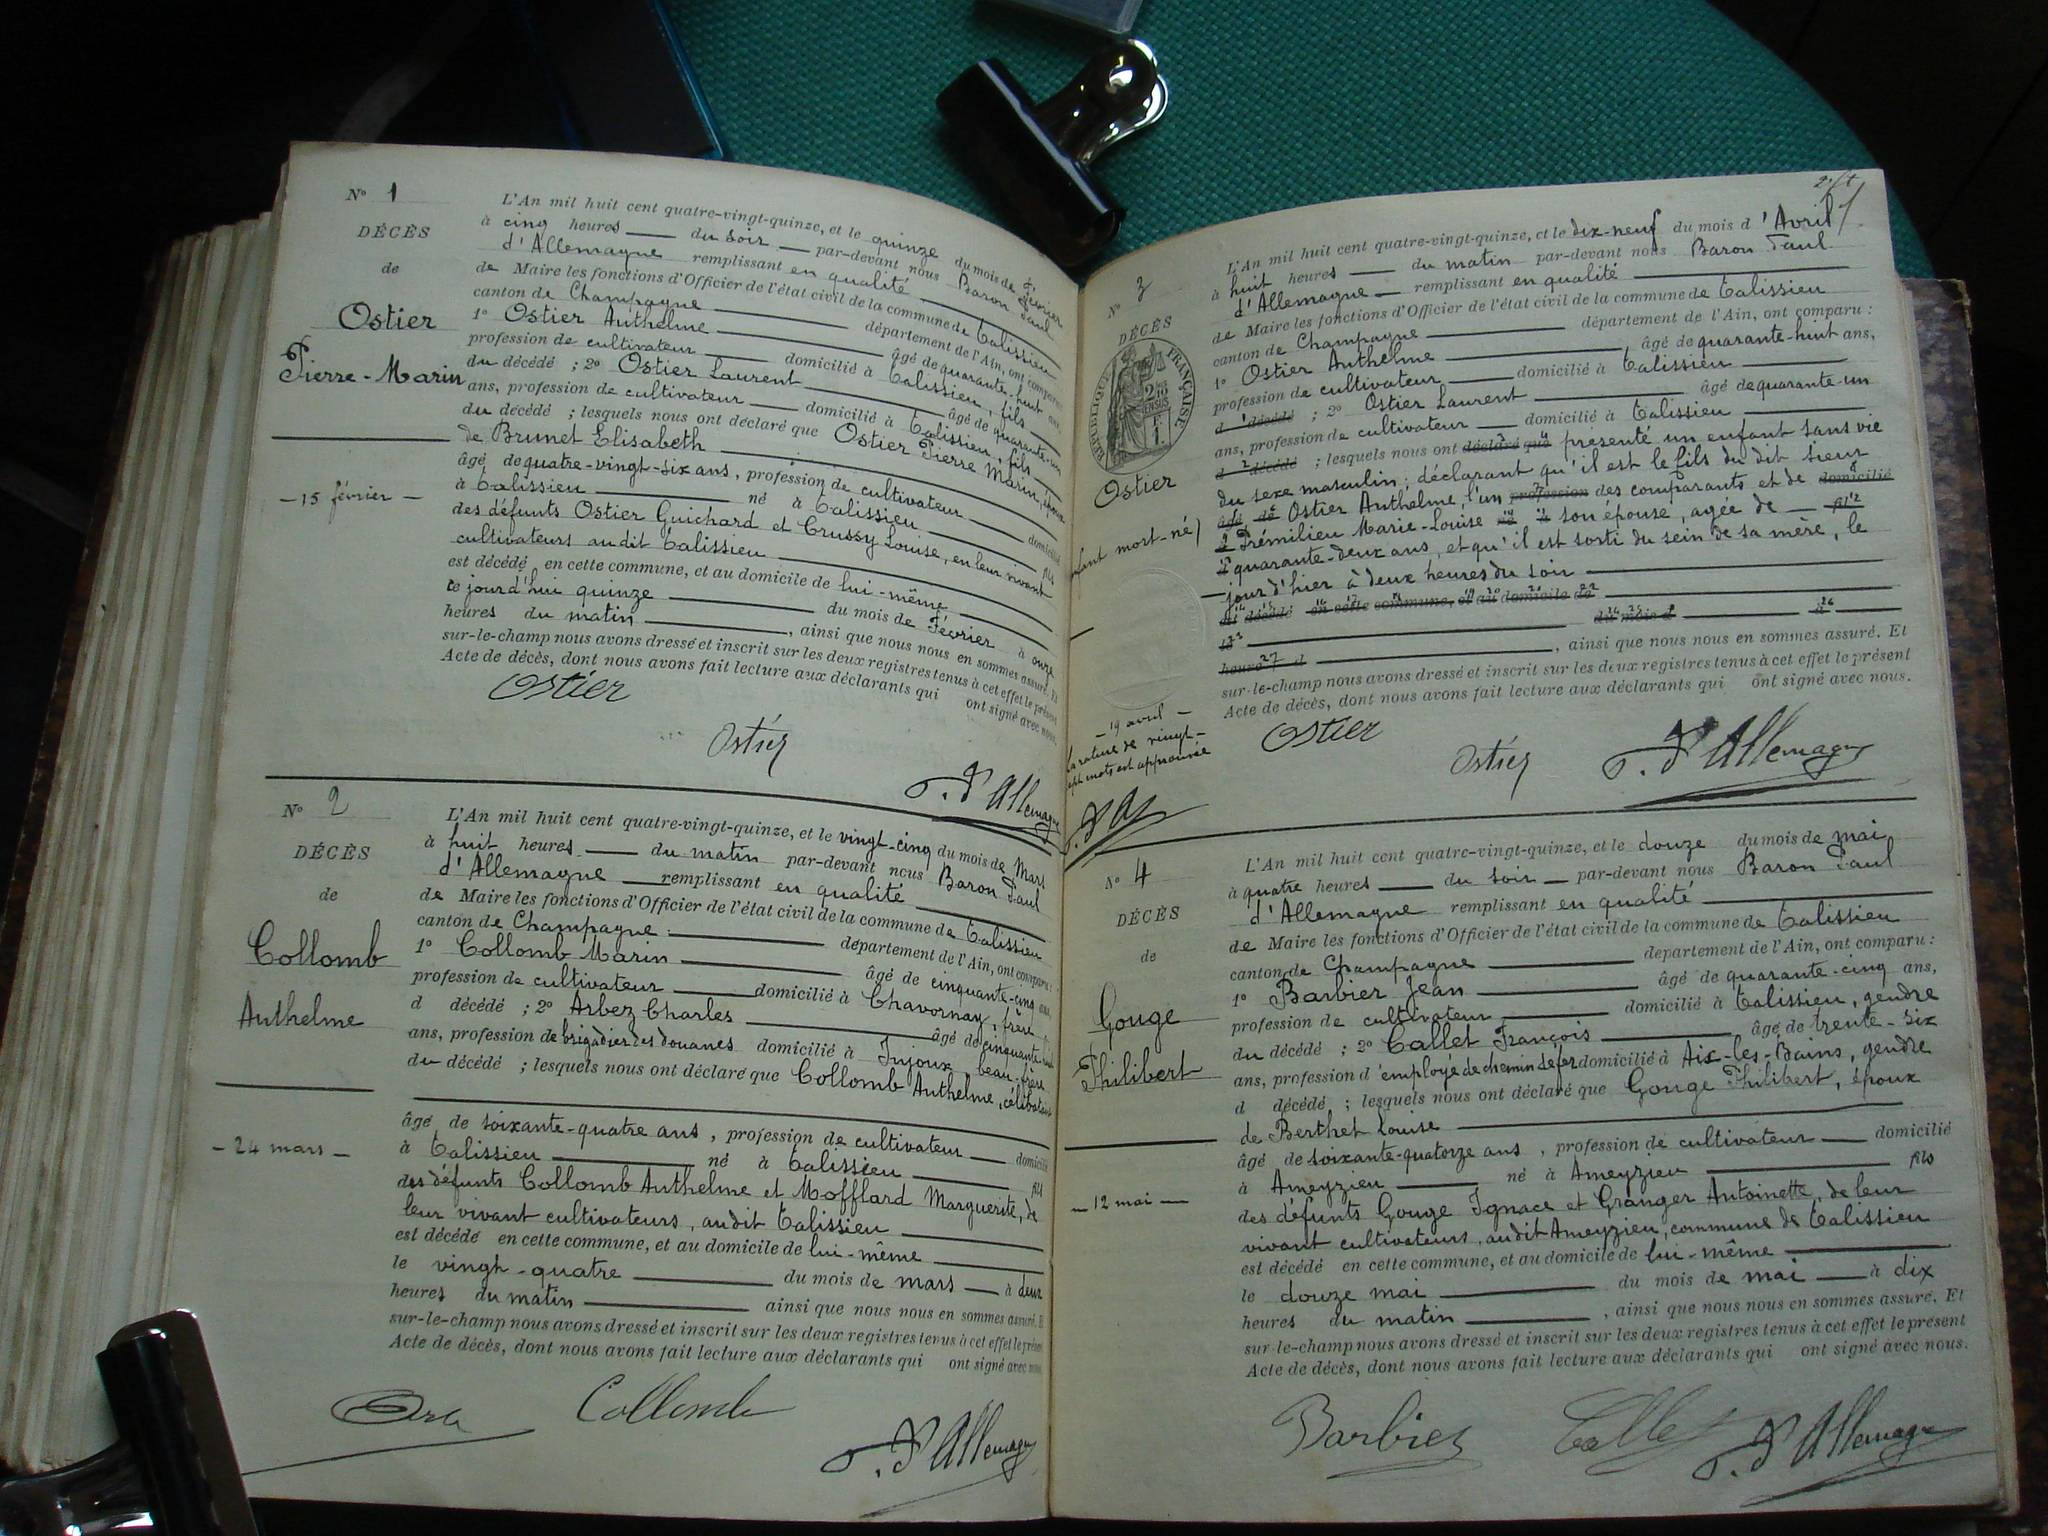 N° 1
DÉCÈS
de
Ostier
Pierre-Marin
- 15 février -
L'An mil huit cent quatre-vingt-quinze, et le quinze du mois de Février
à cinq heures du soir par-devant nous Baron Paul
d'Allemagne remplissant en qualité
de Maire les fonctions d'Officier de l'état civil de la commune de Talissieu
canton de Champagne département de l'Ain, ont comparu
1° Ostier Anthelme âgé de quarante-huit ans,
profession de cultivateur domicilié à Talissieu, fils
du décédé ; 2° Ostier Laurent âgé de quarante-un
ans, profession de cultivateur domicilié à Talissieu, fils
du décédé ; lesquels nous ont déclaré que Ostier Pierre Marin, époux
de Brunet Elisabeth
âgé de quatre-vingt-six ans, profession de cultivateur domicilié
à Talissieu né à Talissieu fils
des défunts Ostier Guichard et Trussy Louise, en leur vivant
cultivateurs audit Talissieu
est décédé en cette commune, et au domicile de lui-même
ce jourd'hui quinze du mois de Février à onze
heures du matin, ainsi que nous nous en sommes assuré. Et
sur-le-champ nous avons dressé et inscrit sur les deux registres tenus à cet effet le présent
Acte de décès, dont nous avons fait lecture aux déclarants qui ont signé avec nous.
Ostier
Ostier
P. d'Allemagne
N° 2
DÉCÈS
de
Collomb
Anthelme
- 24 mars -
L'An mil huit cent quatre-vingt-quinze, et le vingt-cinq du mois de Mars
à huit heures du matin par-devant nous Baron Paul
d'Allemagne remplissant en qualité
de Maire les fonctions d'Officier de l'état civil de la commune de Talissieu
canton de Champagne département de l'Ain, ont comparu :
1° Collomb Marin âgé de cinquante-cinq ans,
profession de cultivateur domicilié à Chavornay, frère
d décédé ; 2° Arbez Charles âgé de cinquante-
ans, profession de brigadier des douanes domicilié à Injoux, beau-frère
du décédé ; lesquels nous ont déclaré que Collomb Anthelme, célibataire
âgé de soixante-quatre ans, profession de cultivateur domicilié
à Talissieu né à Talissieu fils
des défunts Collomb Anthelme et Mofflard Marguerite, de
leur vivant cultivateurs, audit Talissieu
est décédé en cette commune, et au domicile de lui-même
le vingt-quatre du mois de mars à deux
heures du matin ainsi que nous nous en sommes assuré. Et
sur-le-champ nous avons dressé et inscrit sur les deux registres tenus à cet effet le présent
Acte de décès, dont nous avons fait lecture aux déclarants qui ont signé avec nous.
Collomb
P. d'Allemagne
N° 3
DÉCÈS
RÉPUBLIQUE FRANÇAISE
Ostier
mort-né)
- 19 avril -
la rature de vingt-
sept mots est approuvée
L'An mil huit cent quatre-vingt-quinze, et le dix-neuf du mois d'Avril
à huit heures du matin par-devant nous Baron Paul
d'Allemagne remplissant en qualité
de Maire les fonctions d'Officier de l'état civil de la commune de Talissieu
canton de Champagne département de l'Ain, ont comparu :
1° Ostier Anthelme âgé de quarante-huit ans,
profession de cultivateur domicilié à Talissieu
d 1 décédé ; 2° Ostier Laurent âgé de quarante-un
ans, profession de cultivateur domicilié à Talissieu
d 2 décédé ; lesquels nous ont déclaré que présenté un enfant sans vie
du sexe masculin ; déclarant qu'il est le fils du dit sieur
âgé de Ostier Anthelme, l'un profession des comparants et de domicilié
à Prémilieu Marie-Louise né à son épouse, agée de fils
quarante-deux ans, et qu'il est sorti du sein de sa mère, le
jour d'hier à deux heures du soir
est décédé en cette commune, et au domicile de
le du mois d à
heures d, ainsi que nous nous en sommes assuré. Et
sur-le-champ nous avons dressé et inscrit sur les deux registres tenus à cet effet le présent
Acte de décès, dont nous avons fait lecture aux déclarants qui ont signé avec nous.
Ostier
Ostier
P. d'Allemagne
N° 4
DÉCÈS
de
Gouge
Philibert
- 12 mai -
L'An mil huit cent quatre-vingt-quinze, et le douze du mois de mai
à quatre heures du soir par-devant nous Baron Paul
d'Allemagne remplissant en qualité
de Maire les fonctions d'Officier de l'état civil de la commune de Talissieu
canton de Champagne département de l'Ain, ont comparu :
1° Barbier Jean âgé de quarante-cinq ans,
profession de cultivateur domicilié à Talissieu, gendre
du décédé ; 2° Callet François âgé de trente-six
ans, profession d'employé de chemin de fer domicilié à Aix-les-Bains, gendre
d décédé ; lesquels nous ont déclaré que Gouge Philibert, époux
de Berthet Louise
âgé de soixante-quatorze ans, profession de cultivateur domicilié
à Ameyzieu né à Ameyzieu fils
des défunts Gouge Ignace et Granger Antoinette, de leur
vivant cultivateurs, audit Ameyzieu, commune de Talissieu
est décédé en cette commune, et au domicile de lui-même
le douze mai du mois de mai à dix
heures du matin, ainsi que nous nous en sommes assuré. Et
sur-le-champ nous avons dressé et inscrit sur les deux registres tenus à cet effet le présent
Acte de décès, dont nous avons fait lecture aux déclarants qui ont signé avec nous.
Barbier
Callet
P. d'Allemagne